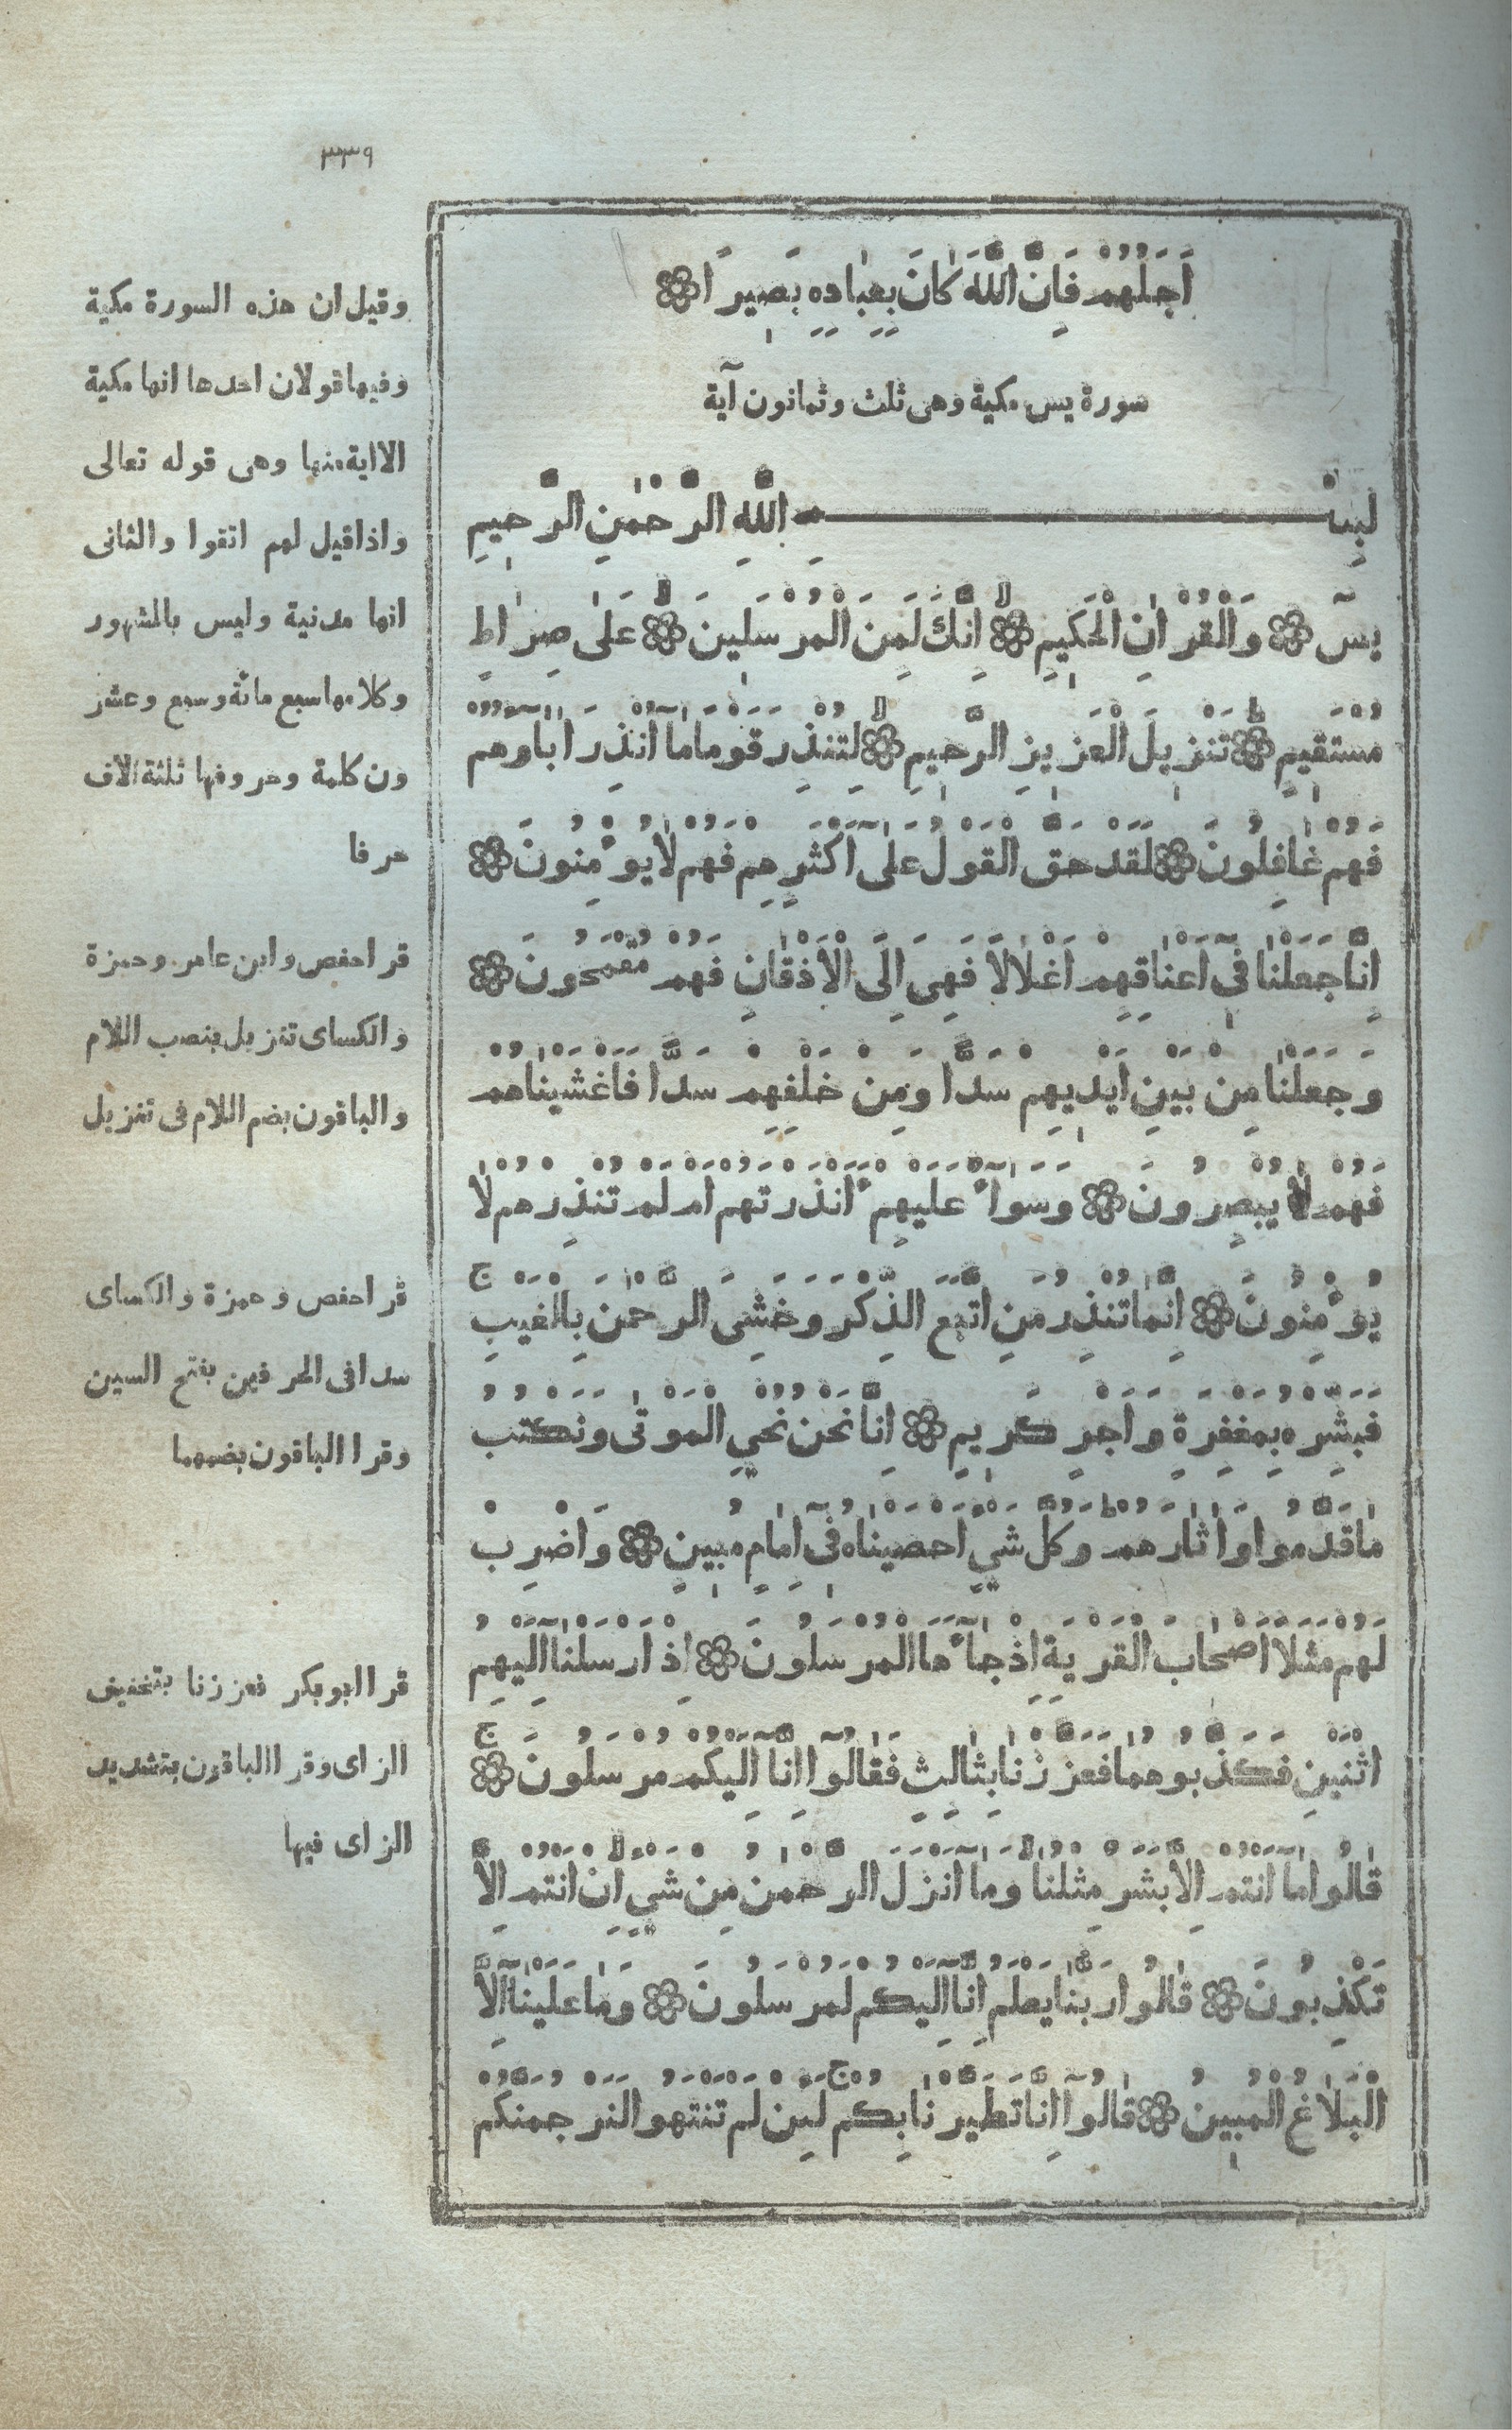 ٣٣٩
اَجَلُهُمْ فَاِنَّ اللّٰهَ كَانَ بِعِبَادِهٖ بَصِيرًا
سورة يس مكية وهى ثلث وثمانون آية
بِسْمِ اللّٰهِ الرَّحْمٰنِ الرَّحِيمِ
يٰسٓ وَالْقُرْاٰنِ الْحَكِيمِ اِنَّكَ لَمِنَ الْمُرْسَلِينَ عَلٰى صِرَاطٍ
مُسْتَقِيمٍ تَنْزِيلَ الْعَزِيزِ الرَّحِيمِ لِتُنْذِرَ قَوْمًا مَا اُنْذِرَ اٰبَاؤُهُمْ
فَهُمْ غَافِلُونَ لَقَدْ حَقَّ الْقَوْلُ عَلٰى اَكْثَرِهِمْ فَهُمْ لَا يُؤْمِنُونَ
اِنَّا جَعَلْنَا فِى اَعْنَاقِهِمْ اَغْلَالًا فَهِىَ اِلَى الْاَذْقَانِ فَهُمْ مُقْمَحُونَ
وَجَعَلْنَا مِنْ بَيْنِ اَيْدِيهِمْ سَدًّا وَمِنْ خَلْفِهِمْ سَدًّا فَاَغْشَيْنَاهُمْ
فَهُمْ لَا يُبْصِرُونَ وَسَوَآءٌ عَلَيْهِمْ ءَاَنْذَرْتَهُمْ اَمْ لَمْ تُنْذِرْهُمْ لَا
يُؤْمِنُونَ اِنَّمَا تُنْذِرُ مَنِ اتَّبَعَ الذِّكْرَ وَخَشِىَ الرَّحْمٰنَ بِالْغَيْبِ ج
فَبَشِّرْهُ بِمَغْفِرَةٍ وَاَجْرٍ كَرِيمٍ اِنَّا نَحْنُ نُحْيِ الْمَوْتٰى وَنَكْتُبُ
مَا قَدَّمُوا وَاٰثَارَهُمْ ط وَكُلَّ شَيْءٍ اَحْصَيْنَاهُ فِى اِمَامٍ مُبِينٍ وَاضْرِبْ
لَهُمْ مَثَلًا اَصْحَابَ الْقَرْيَةِ اِذْ جَآءَهَا الْمُرْسَلُونَ اِذْ اَرْسَلْنَا اِلَيْهِمُ
اثْنَيْنِ فَكَذَّبُوهُمَا فَعَزَّزْنَا بِثَالِثٍ فَقَالُوا اِنَّا اِلَيْكُمْ مُرْسَلُونَ ج
قَالُوا مَا اَنْتُمْ اِلَّا بَشَرٌ مِثْلُنَا وَمَا اَنْزَلَ الرَّحْمٰنُ مِنْ شَيْءٍ اِنْ اَنْتُمْ اِلَّا
تَكْذِبُونَ قَالُوا رَبُّنَا يَعْلَمُ اِنَّا اِلَيْكُمْ لَمُرْسَلُونَ وَمَا عَلَيْنَا اِلَّا
الْبَلَاغُ الْمُبِينُ قَالُوا اِنَّا تَطَيَّرْنَا بِكُمْ ج لَئِنْ لَمْ تَنْتَهُوا لَنَرْجُمَنَّكُمْ
وقيل ان هذه السورة مكية
وفيها قولان احدها انها مكية
الا اية منها وهى قوله تعالى
واذا قيل لهم اتقوا والثانى
انها مدنية وليس بالمشهور
وكلامها سبع مائة وسبع وعشر
ون كلمة وحروفها ثلثة الاف
حرفا
قرا حفص وابن عامر وحمزة
والكساى تنزيل بنصب اللام
والباقون بضم اللام فى تنزيل
قرا حفص وحمزة والكساى
سدا فى الحرفين بفتح السين
وقرا الباقون بضمهما
قرا ابو بكر فعززنا بتخفيف
الزاى وقرا الباقون بتشديد
الزاى فيها